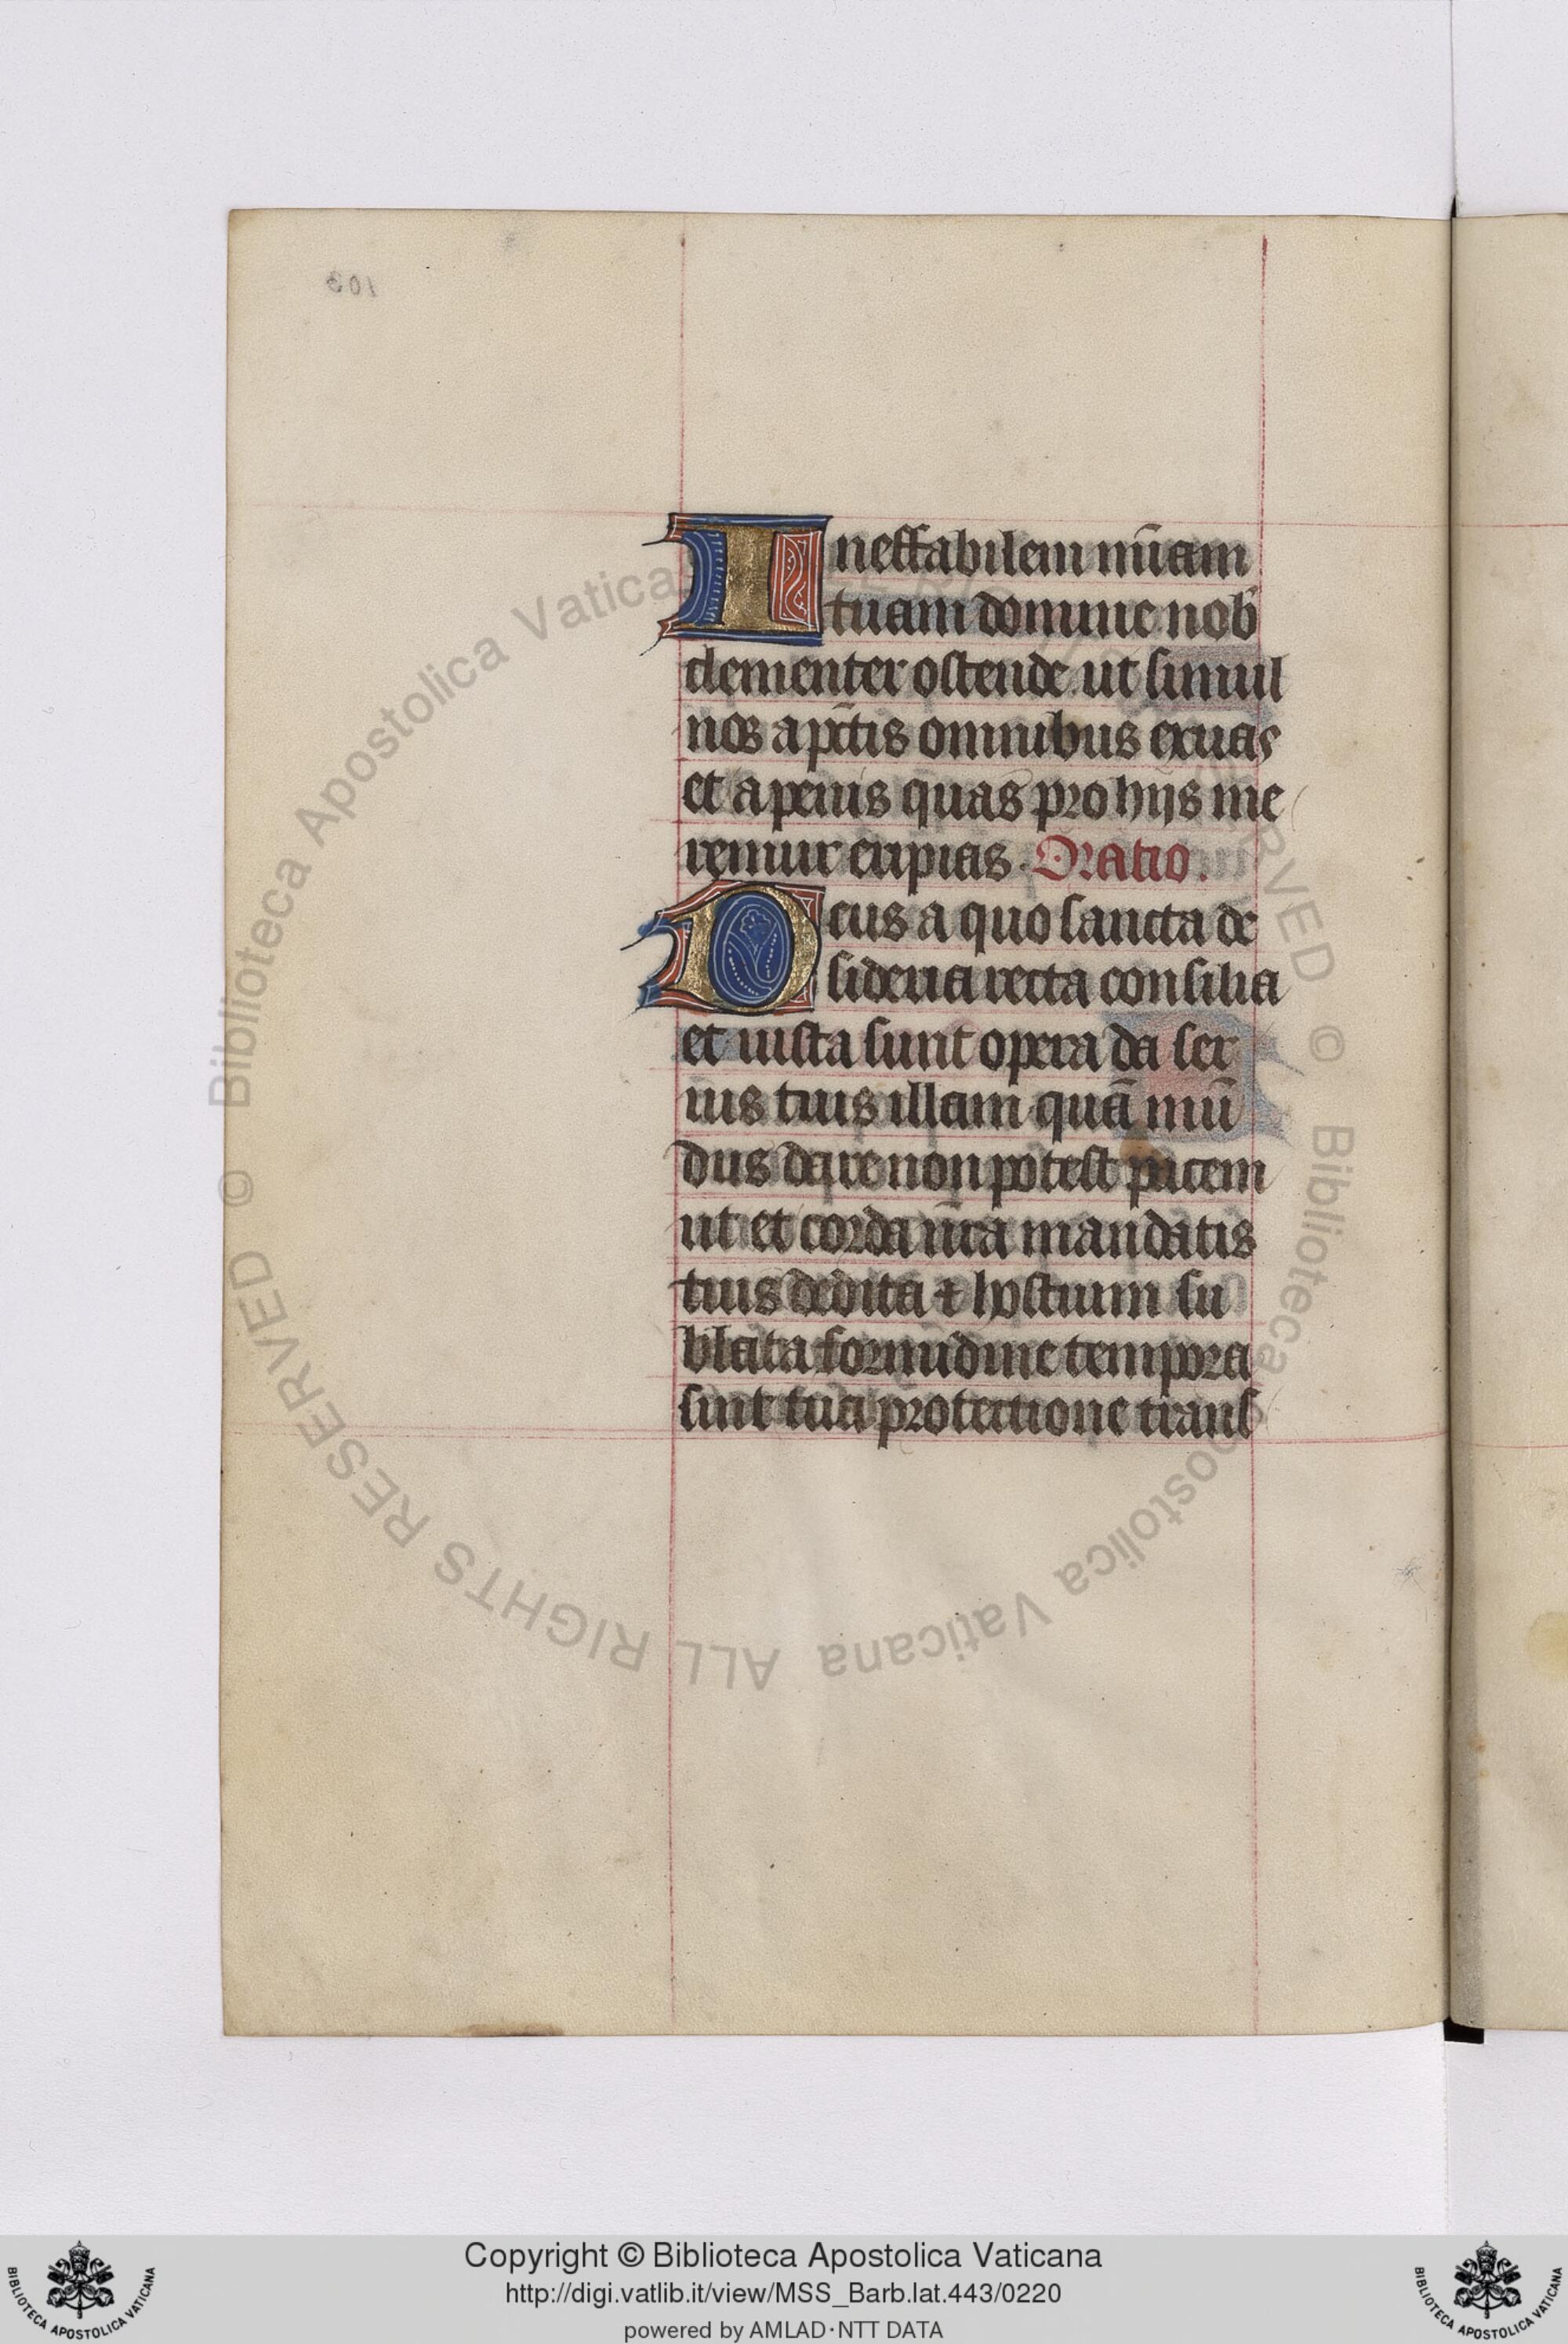 Ineffabilem mīam
tuam domine nob̄
clementer ostende ut simul
nos a pctīs omnibus exuas
et a penis quas pro hijs me
remur eripias. Oratio.
Deus a quo sancta de
sideria recta consilia
et iusta sunt opera da ser
uis tuis illam quā mū
dus dare non potest pacem
ut et corda nr̄a mandatis
tuis dedita ⁊ hostium su
blata formidine tempora
sint tua protectione trans
© Biblioteca Apostolica Vaticana ALL RIGHTS RESERVED © Biblioteca Apostolica Vaticana ALL RIGHTS RESERVED
Copyright © Biblioteca Apostolica Vaticana
http://digi.vatlib.it/view/MSS_Barb.lat.443/0220
powered by AMLAD·NTT DATA
BIBLIOTECA APOSTOLICA VATICANA
BIBLIOTECA APOSTOLICA VATICANA